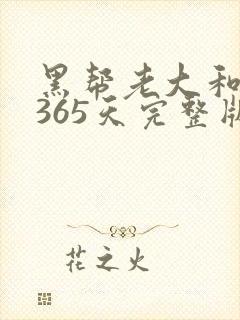 黑帮老大和
365天完整版
花之火